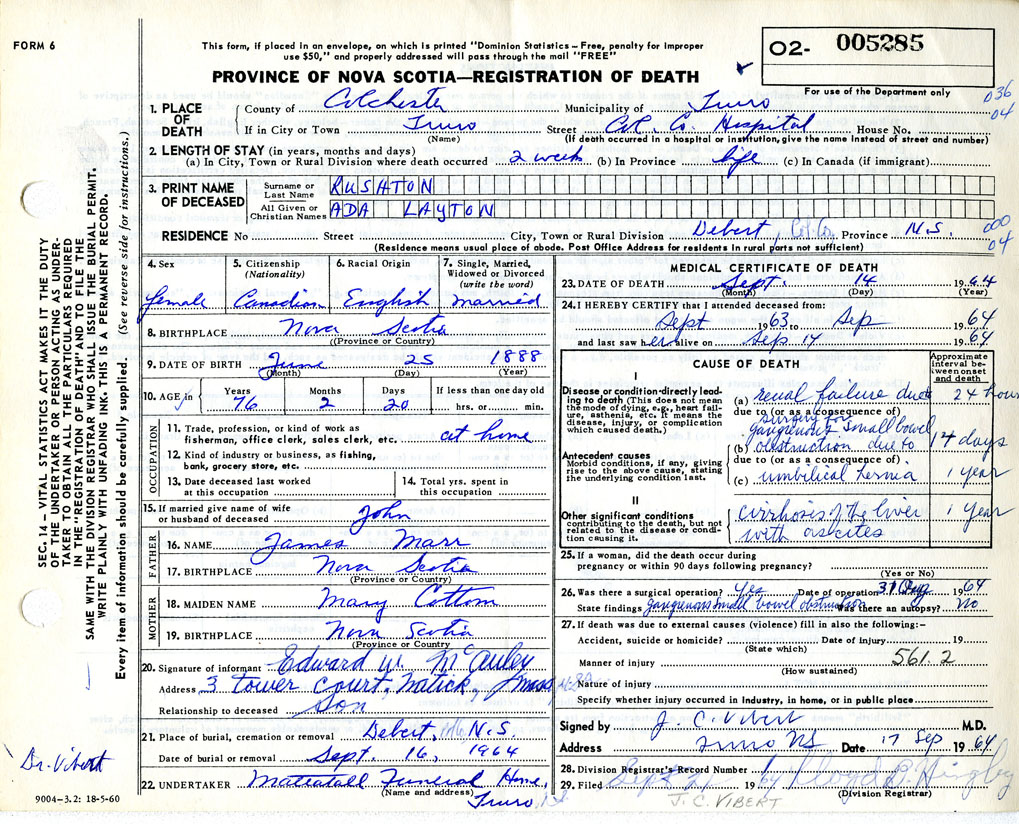 FORM 6
This form, if placed in an envelope, on which is printed "Dominion Statistics – Free, penalty for improper
use $50," and properly addressed will pass through the mail "FREE"
O2- 005285
For use of the Department only
PROVINCE OF NOVA SCOTIA—REGISTRATION OF DEATH
036
04
1. PLACE OF DEATH
County of Colchester Municipality of Truro
If in City or Town Truro Street Col. Co. Hospital House No.
(Name) (If death occurred in a hospital or institution, give the name instead of street and number)
2. LENGTH OF STAY (in years, months and days)
(a) In City, Town or Rural Division where death occurred 2 weeks (b) In Province life (c) In Canada (if immigrant)
3. PRINT NAME OF DECEASED
Surname or Last Name RUSHTON
All Given or Christian Names ADA LAYTON
RESIDENCE No. Street City, Town or Rural Division Debert, Col. Co. Province N.S.
000
04
(Residence means usual place of abode. Post Office Address for residents in rural parts not sufficient)
4. Sex female
5. Citizenship (Nationality) Canadian
6. Racial Origin English
7. Single, Married, Widowed or Divorced (write the word) married
8. BIRTHPLACE Nova Scotia
(Province or Country)
9. DATE OF BIRTH June 25 1888
(Month) (Day) (Year)
10. AGE in Years 76 Months 2 Days 20 If less than one day old hrs. or min.
OCCUPATION
11. Trade, profession, or kind of work as fisherman, office clerk, sales clerk, etc. at home
12. Kind of industry or business, as fishing, bank, grocery store, etc.
13. Date deceased last worked at this occupation
14. Total yrs. spent in this occupation
15. If married give name of wife or husband of deceased John
FATHER
16. NAME James Marr
17. BIRTHPLACE Nova Scotia
(Province or Country)
MOTHER
18. MAIDEN NAME Mary Cottom
19. BIRTHPLACE Nova Scotia
(Province or Country)
20. Signature of informant Edward W. McAuley
Address 3 Tower Court, Natick, Mass
Relationship to deceased Son
21. Place of burial, cremation or removal Debert, N.S.
Date of burial or removal Sept. 16, 1964
22. UNDERTAKER Mattatall Funeral Home,
(Name and address) Truro, N.S.
MEDICAL CERTIFICATE OF DEATH
23. DATE OF DEATH Sept. 14 1964
(Month) (Day) (Year)
24. I HEREBY CERTIFY that I attended deceased from:
Sept 1963 to Sep 1964
and last saw her alive on Sep. 14 1964
CAUSE OF DEATH
Approximate interval between onset and death
I
Disease or condition directly leading to death (This does not mean the mode of dying, e.g., heart failure, asthenia, etc. It means the disease, injury, or complication which caused death.)
(a) renal failure due 24 hours
due to (or as a consequence of)
surgery for
gangrenous small bowel
(b) obstruction due to 14 days
due to (or as a consequence of)
Antecedent causes
Morbid conditions, if any, giving rise to the above cause, stating the underlying condition last.
(c) umbilical hernia 1 year
II
Other significant conditions contributing to the death, but not related to the disease or condition causing it.
cirrhosis of the liver 1 year
with ascites
25. If a woman, did the death occur during pregnancy or within 90 days following pregnancy?
(Yes or No)
26. Was there a surgical operation? Yes Date of operation 31 Aug 1964
State findings Gangrenous small bowel obstruction Was there an autopsy? No
27. If death was due to external causes (violence) fill in also the following:–
Accident, suicide or homicide? Date of injury 19
(State which)
Manner of injury 561.2
(How sustained)
Nature of injury
Specify whether injury occurred in industry, in home, or in public place
Signed by J. C. Vibert M.D.
Address Truro NS Date 17 Sep 1964
28. Division Registrar's Record Number
29. Filed Sept 19 by Lloyd
(Division Registrar)
J.C. VIBERT
SEC. 14 – VITAL STATISTICS ACT MAKES IT THE DUTY
OF THE UNDERTAKER OR PERSON ACTING AS UNDER-
TAKER TO OBTAIN ALL THE PARTICULARS REQUIRED
IN THE "REGISTRATION OF DEATH" AND TO FILE THE
SAME WITH THE DIVISION REGISTRAR WHO SHALL ISSUE THE BURIAL PERMIT.
WRITE PLAINLY WITH UNFADING INK. THIS IS A PERMANENT RECORD.
Every item of information should be carefully supplied. (See reverse side for instructions.)
Dr. Vibert
9004-3.2: 18-5-60